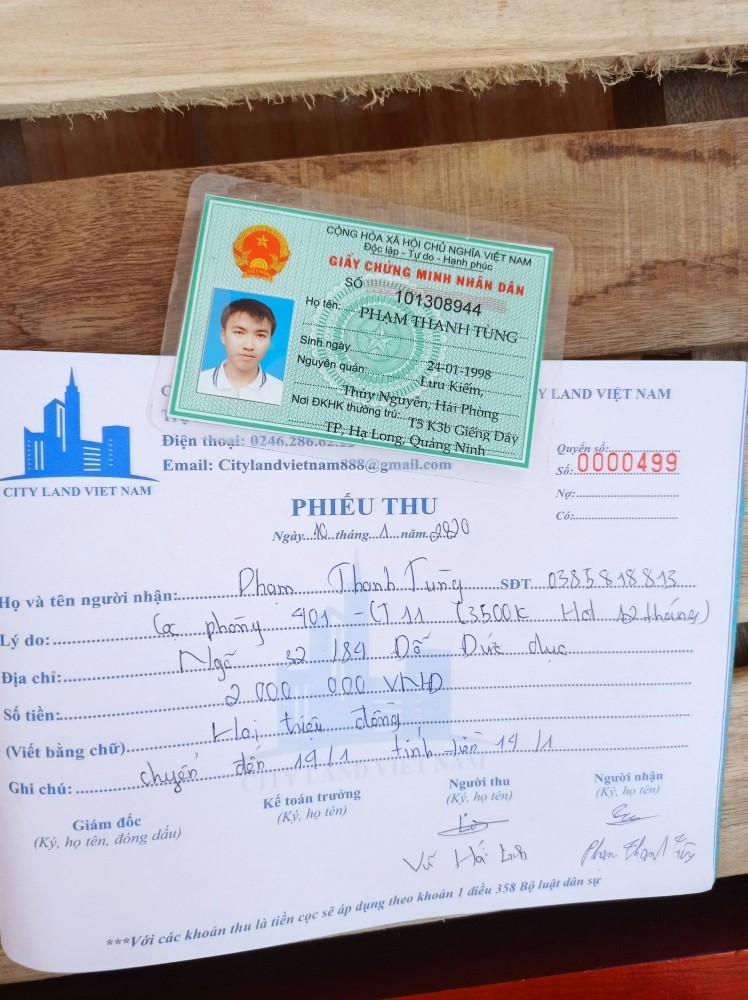 CỘNG HÒA XÃ HỘI CHỦ NGHĨA VIỆT NAM
Độc lập - Tự do - Hạnh phúc
GIẤY CHỨNG MINH NHÂN DÂN
SỐ 101308944
Họ tên: PHẠM THANH TÙNG
Sinh ngày 24-01-1998
Nguyên quán: Lưu Kiếm,
Thủy Nguyên, Hải Phòng
Nơi ĐKHK thường trú: T5 K3b Giếng Đáy
TP, Hạ Long, Quảng Ninh
CITY LAND VIET NAM
Y LAND VIỆT NAM
Điện thoại: 0246.286.
Email: Citylandvietnam888@gmail.com
Quyển số:
Số: 0000499
Nợ:
Có:
PHIẾU THU
Ngày 10 tháng 1 năm 2020
Họ và tên người nhận: Phạm Thanh Tùng SĐT 0385818813
Lý do: Cọc phòng 401 - CT11 (3500K Hđ 12 tháng)
Địa chỉ: Ngõ 32 /84 Đỗ Đức dục
Số tiền: 2 000 000 VNĐ
(Viết bằng chữ) Hai triệu đồng
Ghi chú: chuyển đến 14/1 tính tiền 14/1
CITY LAND VIET NAM
Giám đốc
(Ký, họ tên, đóng dấu)
Kế toán trưởng
(Ký, họ tên)
Người thu
(Ký, họ tên)
Người nhận
(Ký, họ tên)
Vũ Hải
Phạm Thanh Tùng
***Với các khoản thu là tiền cọc sẽ áp dụng theo khoản 1 điều 358 Bộ luật dân sự